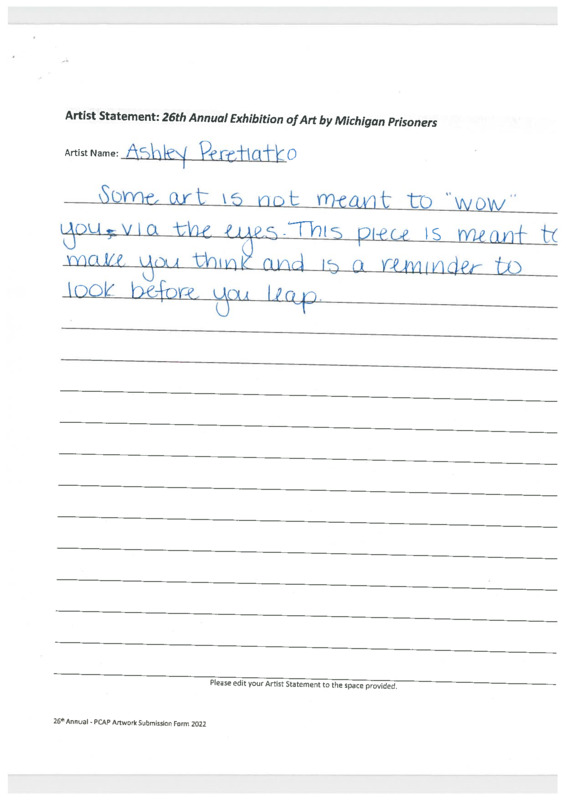 Artist Statement: 26th Annual Exhibition of Art by Michigan Prisoners
Artist Name: Ashley Peretiatko
Some art is not meant to "wow"
you, via the eyes. This piece is meant to
make you think and is a reminder to
look before you leap.
Please edit your Artist Statement to the space provided.
26th Annual - PCAP Artwork Submission Form 2022